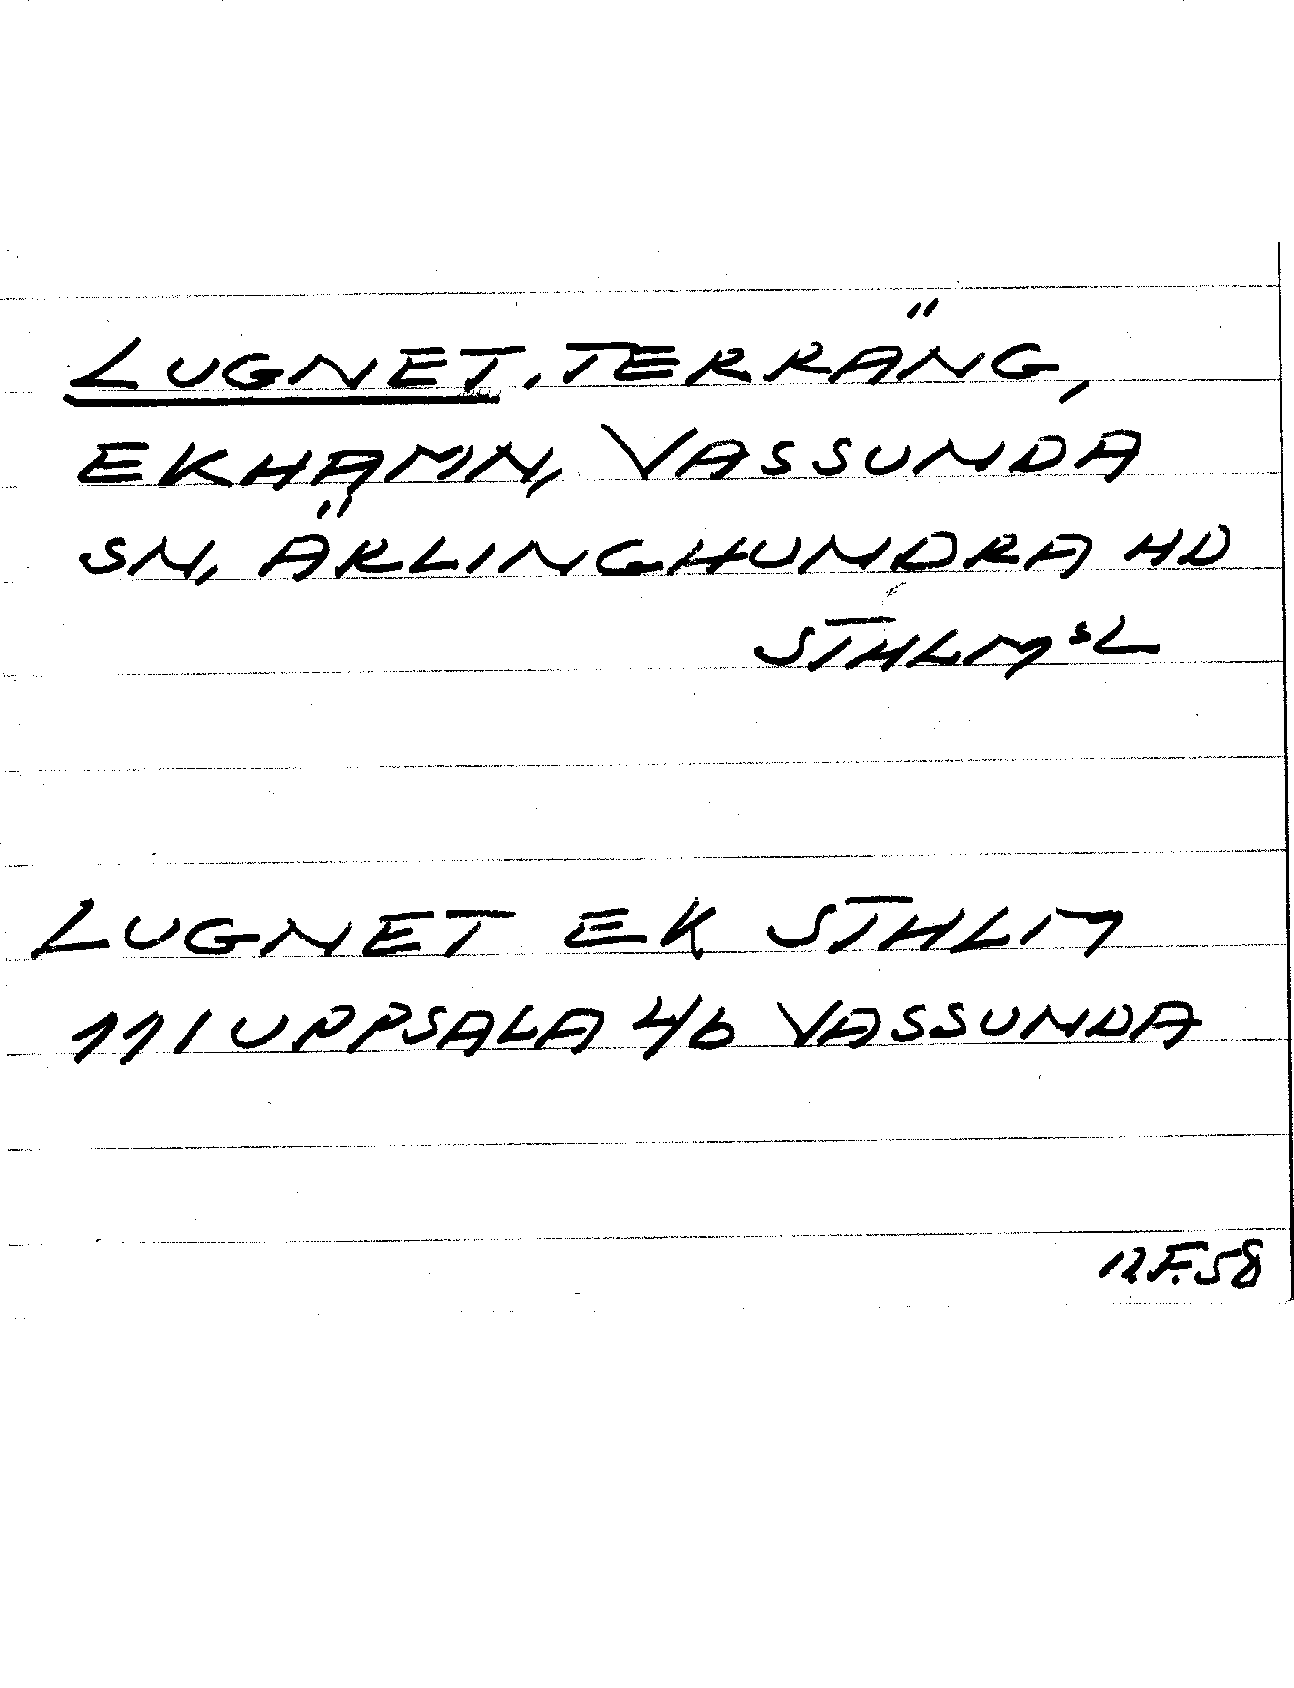 LUGNET, TERRÄNG,
EKHAMN, VASSUNDA
SN, ÄRLINGHUNDRA HD
STHLMSL
LUGNET EK STHLM
111 UPPSALA 4b VASSUNDA
12F.58